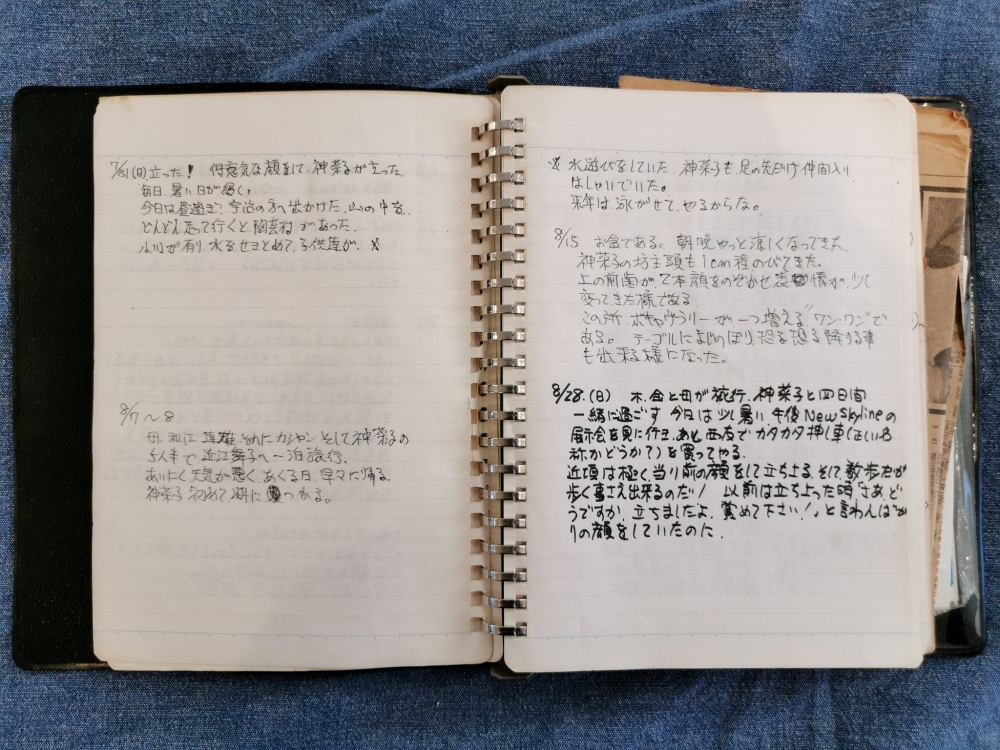 7/31(日) 立った! 得意気な顔をして、神菜子が立った
毎日、暑い日が続く。
今日は昼過ぎ、宇治の方へ出かけた、山の中を、
どんどん走って行くと、陶芸村があった。
小川が有り、水をせきとめて、子供達が、※
8/7〜8
母、和江、それにカシャン、そして神菜子の
5人で近江舞子へ一泊旅行。
あいにく天気が悪く、あくる日、早々に帰る
神菜子初めて湖につかる。
※ 水遊びをしていた 神菜子も足の先だけ仲間入り
はしゃいでいた。
来年は泳がせてやるからな。
8/15 お盆である。朝晩やっと涼しくなってきた、
神菜子の坊主頭も1cm程のびてきた。
上の前歯が2本顔をのぞかせ表情が、少し
変ってきた様である
この所、ボキャブラリーが一つ増える"ワンワン"で
ある。テーブルによじのぼり恐る恐る降りる事
も出来る様になった。
8/28.(日) 母が旅行、神菜子と四日間
一緒に過ごす 今日は少し暑い 午後New Skylineの
展示会を見に行き、あと西友でカタカタ押し車(正しい名
称かどうか?)を買ってやる。
近頃は極く当り前の顔をして立ち上る、そして数歩だが
歩く事さえ出来るのだ! 以前は立ち上った時「さあ、ど
うですか、立ちましたよ、賞めて下さい!」と言わんばか
りの顔をしていたのに、